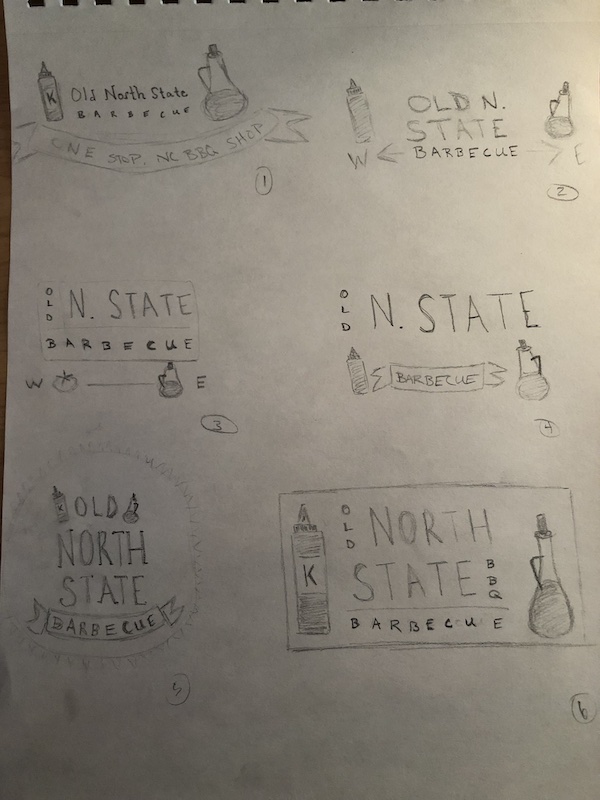 K
Old North State
BARBECUE
ONE STOP, NC BBQ SHOP
1
OLD N.
STATE
W BARBECUE E
2
OLD
N. STATE
BARBECUE
W E
3
OLD
N. STATE
BARBECUE
4
K OLD
NORTH
STATE
BARBECUE
5
K
OLD
NORTH
STATE
BBQ
BARBECUE
6